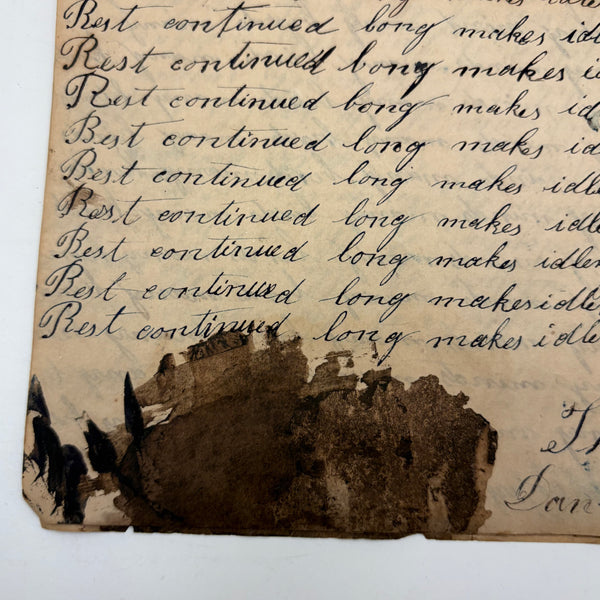 Rest continued long makes idlen
Rest continued long makes idl
Rest continued bong makes i
Rest continued bong makes id
Best continued long makes id
Best continued long makes idle
Rest continued long makes idl
Best continued long makes idlen
Best continued long makes idle
Rest continued long makes idlen